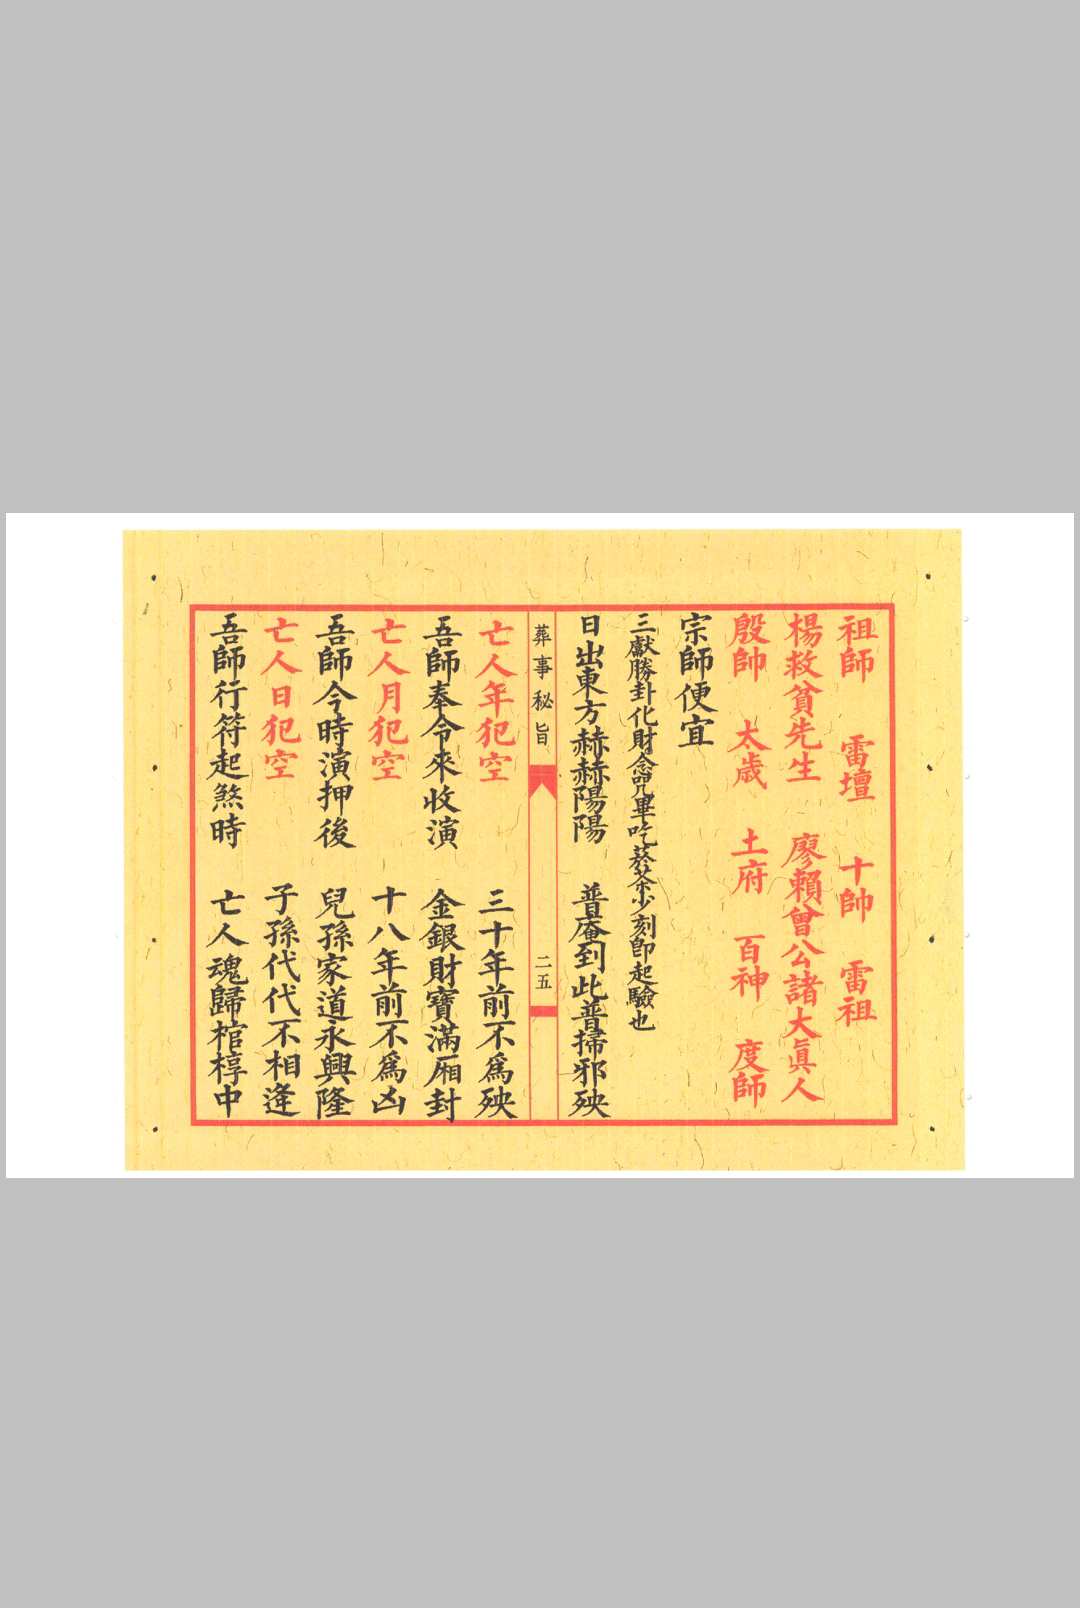 祖師　雷壇　十帥　雷祖
楊救貧先生　廖賴曾公諸大眞人
殷帥　太歲　土府　百神　度師
宗師便宜
三獻勝卦化財念咒畢吃茶少刻即起驗也
日出東方赫赫陽陽　普庵到此普掃邪殃
葬事秘旨　二五
亡人年犯空　三十年前不爲殃
吾師奉令來收演　金銀財寶滿廂封
亡人月犯空　十八年前不爲凶
吾師今時演押後　兒孫家道永興隆
亡人日犯空　子孫代代不相逢
吾師行符起煞時　亡人魂歸棺椁中